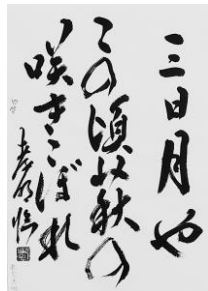 三日月や
この頃萩の
咲きこぼれ